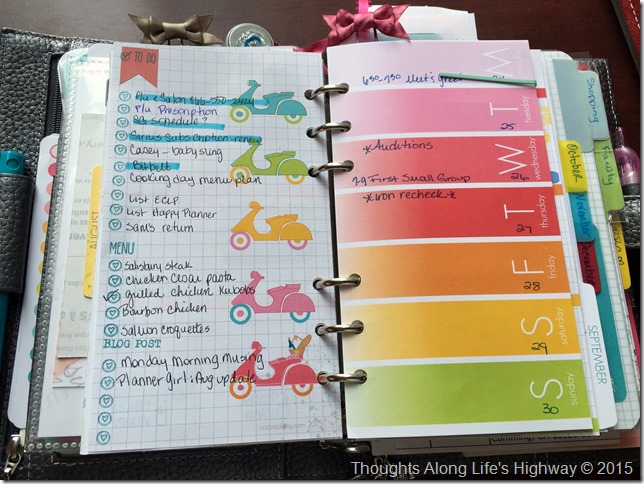 TO DO
Salon 866-550-2424
Plu Prescription
Sd schedule?
Sirius Subscription renew
Casey - babysling
Bibbett
Cooking day menu plan
List ECLP
List Happy Planner
Sam's return
MENU
Salisbury steak
Chicken Cesar pasta
Grilled chicken Kabobs
Bourbon chicken
Salmon croquettes
BLOG POST
Monday Morning Musing
Planner Girl: Aug update
cocoadaisy.com
M
630-730 Meet & greet
T
tuesday
25
W
wednesday
*Auditions
7-9 First Small Group
26
T
thursday
*iron recheck*
27
F
friday
28
S
saturday
29
S
sunday
30
AUGUST
Shopping
Family
October
November
December
SEPTEMBER
Cumming,
Thoughts Along Life's Highway © 2015